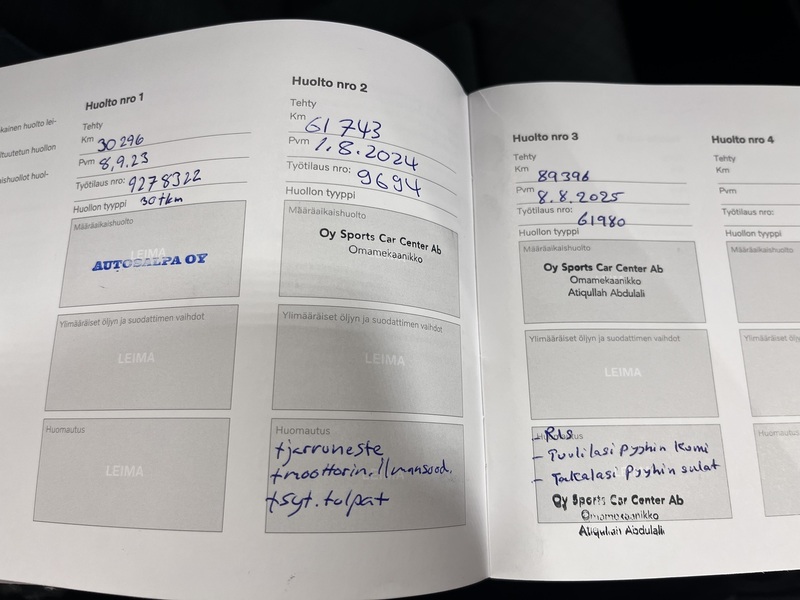 kainen huolto lei-
ltuutetun huollon
ishuollot huol-
Huolto nro 1
Tehty
Km 30 296
Pvm 8,9.23
Työtilaus nro: 9278322
Huollon tyyppi 30tkm
Määräaikaishuolto
LEIMA
AUTOSALPA OY
Ylimääräiset öljyn ja suodattimen vaihdot
LEIMA
Huomautus
LEIMA
Huolto nro 2
Tehty
Km 61 743
Pvm 1.8.2024
Työtilaus nro: 9694
Huollon tyyppi
Määräaikaishuolto
Oy Sports Car Center Ab
Omamekaanikko
Ylimääräiset öljyn ja suodattimen vaihdot
LEIMA
Huomautus
+jarruneste
+moottorin.ilmansuod.
+syt.tulpat
Huolto nro 3
Tehty
Km 89396
Pvm 8.8.2025
Työtilaus nro: 61980
Huollon tyyppi
Määräaikaishuolto
Oy Sports Car Center Ab
Omamekaanikko
Atiqullah Abdulali
Ylimääräiset öljyn ja suodattimen vaihdot
LEIMA
Huomautus
- Tuulilasi Pyyhin Kumi
- Takalasi Pyyhin sulat
Oy Sports Car Center Ab
Omamekaanikko
Atiqullah Abdulali
Huolto nro 4
Tehty
Km
Pvm
Työtilaus nro:
Huollon tyyppi
Määräaikaishuolto
Ylimääräiset öljy
Huomautus